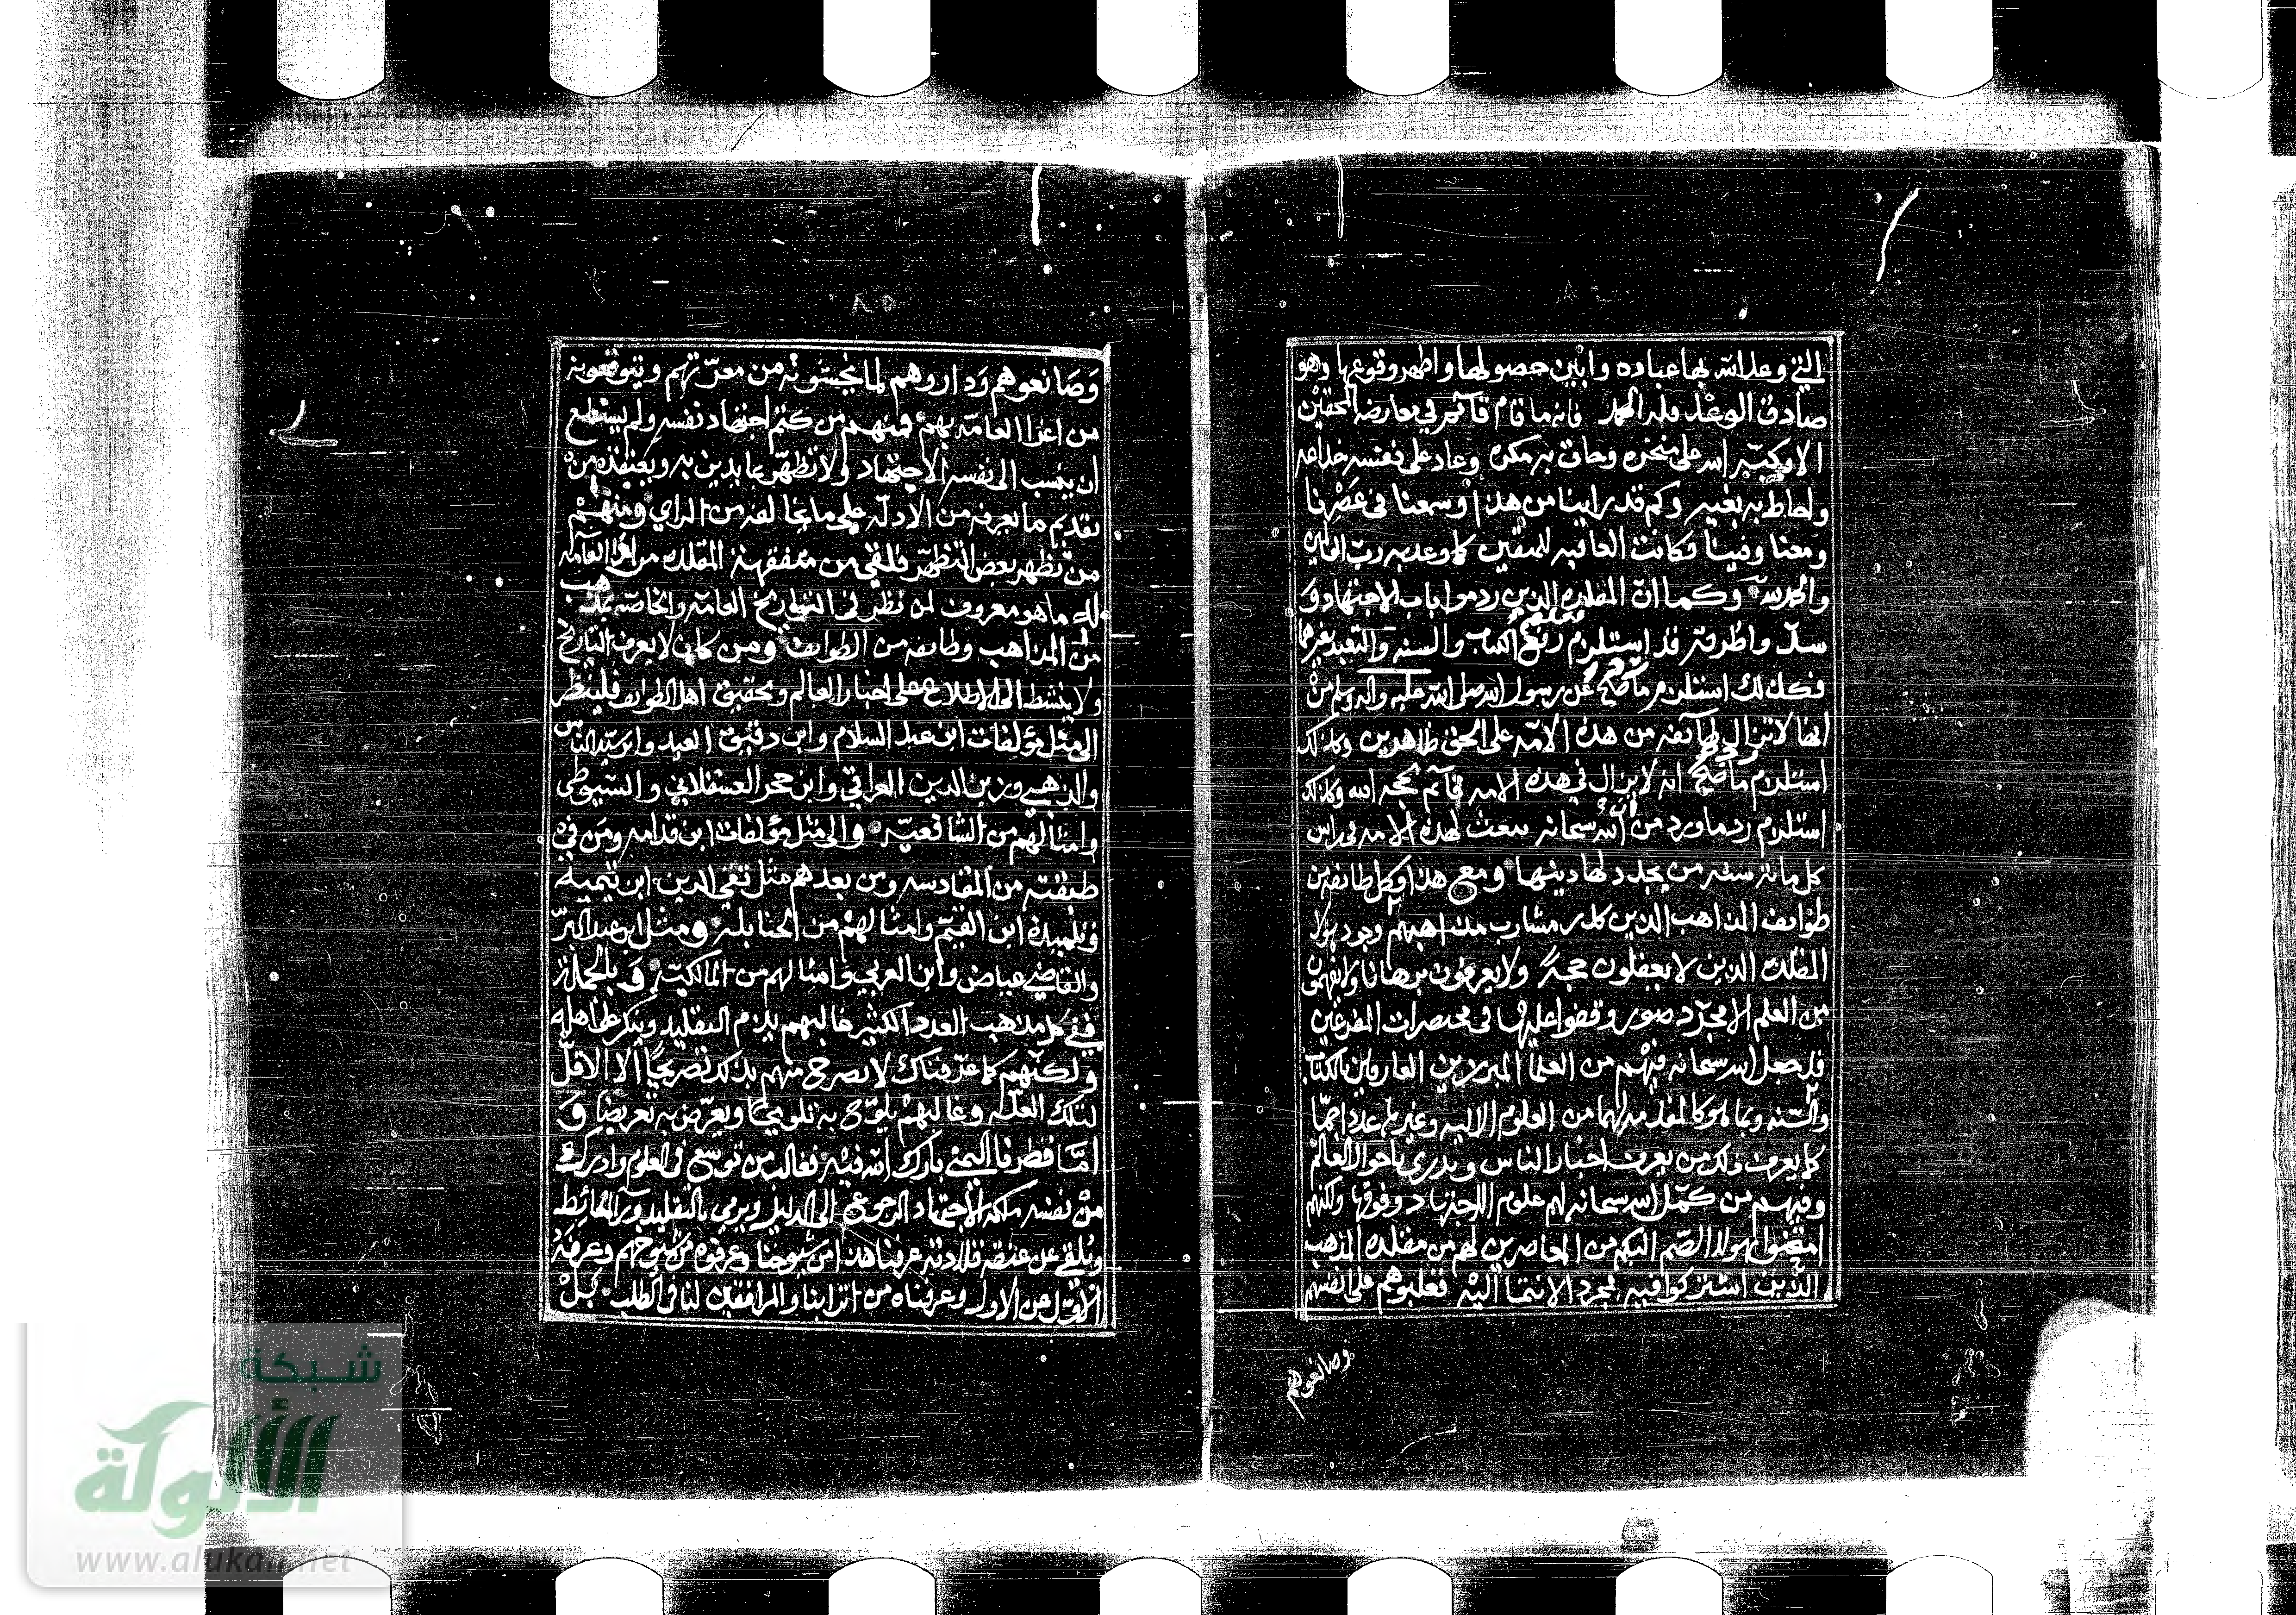 التي وعد الله بها عباده وابين حصولها واظهر وقوعها وهو
صادق الوعد فلله الحمد فانه ما قام قائم في معارضة المحقين
الا وكبه الله على منخره وحاق به مكره وعاد على نفسه خداعه
واحاط به بغيه وكم قد راينا من هذا وسمعنا في عصرنا
ومعنا وفينا فكانت العاقبه للمتقين كما وعد به رب العالمين
والحمد لله وكما ان المقلده الذين ردموا باب الاجتهاد و
سدوا طرقه قد استلزم رفع الكتاب والسنه والتعبد بغيرهما
فكذلك استلزم ما صح عن رسول الله صلى الله عليه واله وسلم من
انها لا تزال طائفه من هذه الامه على الحق ظاهرين وكذلك
استلزم ما صح انه لا يزال في هذه الامه قائم بحجه الله وكذلك
استلزم رد ما ورد من ان الله سبحانه يبعث لهذه الامه في راس
كل مائه سنه من يجدد لها دينها ومع هذا وكل طائفه من
طوايف المذاهب الذين كدر مشارب مذاهبهم وجود هولا
المقلده الذين لا يعقلون حجة ولا يعرفون برهانا ولا يفهمون
من العلم الا مجرد صور وقفوا عليها في مختصرات المفرعين
قد جعل الله سبحانه فيهم من العلما المبرزين العارفين بالكتاب
والسنه وبما هو كالمقدمه لهما من العلوم الاليه وغيرها عددا جما
كما يعرف ذلك من يعرف اخبار الناس ويدري باحوال العالم
وفيهم من كمل الله سبحانه لهم علوم الاجتهاد وفوقها ولكنهم
امتحنوا بهولا الصم البكم من المعاصرين لهم من مقلده المذهب
الذين اشتركوا فيه بمجرد الانتما اليه فغلبوهم على انفسهم
وصانعوهم
وصانعوهم وداروهم لما يخشونه من معرتهم ويتوقعونه
من اغرا العامه بهم فمنهم من كتم اجتهاد نفسه ولم يستطع
ان ينسب الى نفسه الاجتهاد ولا تظهر بما يدين به ويعتقده من
تقديم ما يعرفه من الادله على ما يخالفه من الراي ومنهم
من تظهر بعض التظهر فلقي من متفقهة المقلده من اغرا العامه
به ما هو معروف لمن نظر في التواريخ العامه والخاصه بمذهب
من المذاهب وطائفه من الطوائف ومن كان لا يعرف التاريخ
ولا ينشط الى الاطلاع على اخبار العالم وتحقيق اهل الطوايف فلينظر
الى مثل مؤلفات ابن عبد السلام وابن دقيق العيد وابن سيد الناس
والذهبي وزين الدين العراقي وابن حجر العسقلاني والسيوطي
وامثالهم من الشافعيه والى مثل مؤلفات ابن قدامه ومن في
طبقته من المقادسه ومن بعدهم مثل تقي الدين ابن تيميه
وتلميذه ابن القيم وامثالهم من الحنابله ومثل ابن عبد البر
والقاضي عياض وابن العربي وامثالهم من المالكيه وبالجمله
ففي كل مذهب العدد الكثير غالبهم يذم التقليد وينكر على اهله
ولكنهم كما عرفناك لا يصرح منهم بذلك تصريحا الا الاقل
لتلك العله وغالبهم يلوح به تلويحا ويعرض به تعريضا و
اما قطرنا اليمني بارك الله فيه فغالب من توسع في العلوم وادرك
من نفسه ملكة الاجتهاد الرجوع الى الدليل ويرمي بالتقليد ورا الحائط
ويلقي عن عنقه قلادته عرفنا هذا من شيوخنا وعرفوه من شيوخهم وعرفه
الاول عن الاول وعرفناه من اترابنا والمرافقين لنا في الطلب بل
شبكة
الألوكة
www.alukah.net